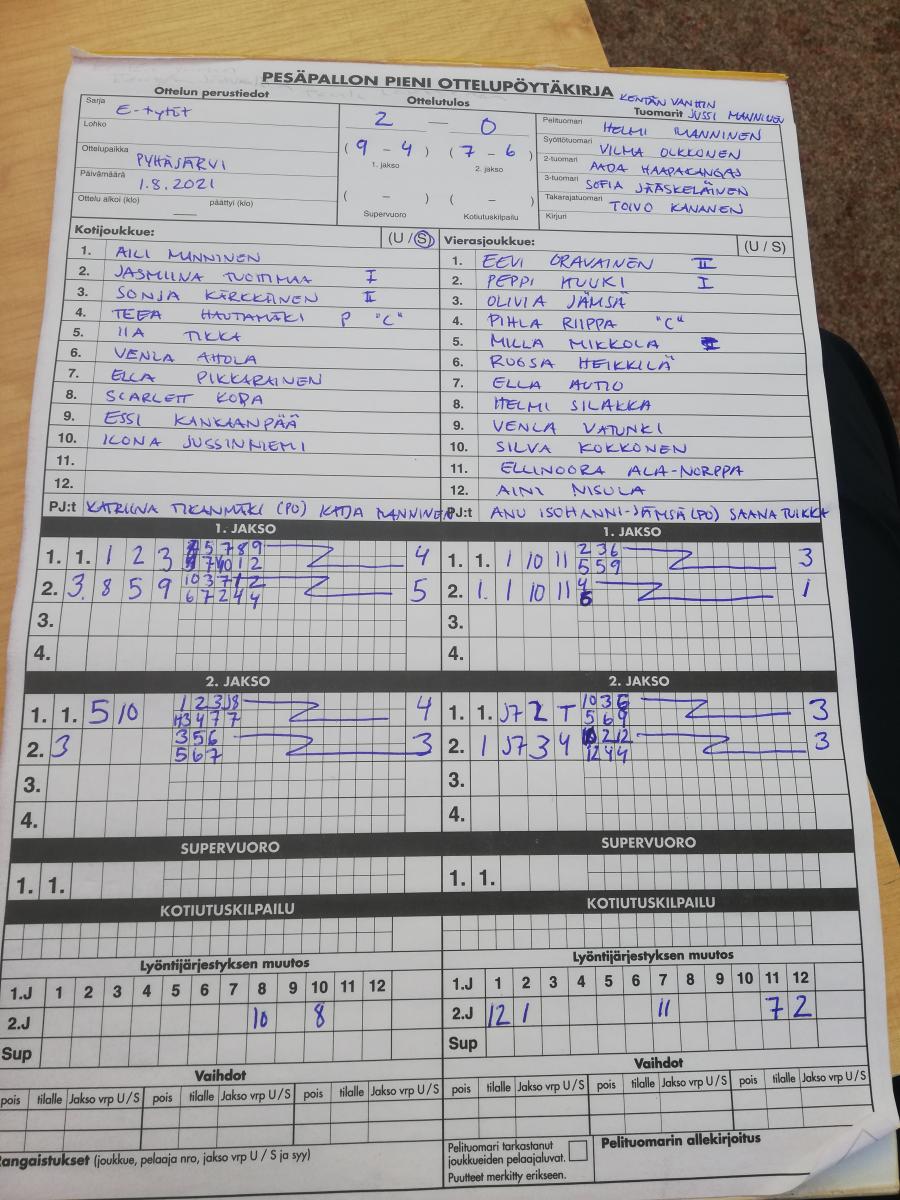 PESÄPALLON PIENI OTTELUPÖYTÄKIRJA
KENTÄN VANHIN
JUSSI MANNINEN
Ottelun perustiedot
Ottelutulos
Tuomarit
Sarja E-tytöt
Lohko
Ottelupaikka PYHÄJÄRVI
Päivämäärä 1.8.2021
Ottelu alkoi (klo) päättyi (klo)
2 — 0
( 9 - 4 ) ( 7 - 6 )
1. jakso 2. jakso
( - ) ( - )
Supervuoro Kotiutuskilpailu
Pelituomari HELMI MANNINEN
Syöttötuomari VILMA OLKKONEN
2-tuomari AADA HAAPAKANGAS
3-tuomari SOFIA JÄÄSKELÄINEN
Takarajatuomari TOIVO KANANEN
Kirjuri
Kotijoukkue: (U / S)
1. AILI MANNINEN
2. JASMIINA TUOTIMAA I
3. SONJA KÄRKKÄINEN II
4. TEEA HAUTAMÄKI P "C"
5. IIA TIKKA
6. VENLA AHOLA
7. ELLA PIKKARAINEN
8. SCARLETT KOPA
9. ESSI KANKAANPÄÄ
10. ILONA JUSSINNIEMI
11.
12.
PJ:t KATRIINA TIKANMÄKI (PO) KATJA MANNINEN
Vierasjoukkue: (U / S)
1. EEVI ORAVAINEN II
2. PEPPI HUUKI I
3. OLIVIA JÄMSÄ
4. PIHLA RIIPPA "C"
5. MILLA MIKKOLA
6. RUUSA HEIKKILÄ
7. ELLA AUTIO
8. HELMI SILAKKA
9. VENLA VATUNKI
10. SILVA KOKKONEN
11. ELLINOORA ALA-NORPPA
12. AINI NISULA
PJ:t ANU ISOHANNI-JÄMSÄ (PO) SAANA TUIKKA
1. JAKSO
1. 1. 1 2 3 4
2. 3. 8 5 9 5
3.
4.
1. JAKSO
1. 1. 1 10 11 2 3 6 3
5 5 9
2. 1. 1 10 11 4 1
3.
4.
2. JAKSO
1. 1. 5 10 4
2. 3 3 5 6 3
5 6 7
3.
4.
2. JAKSO
1. 1. J7 2 T 10 3 6 3
5 6 9
2. 1 J7 3 4 2 12 3
12 4 4
3.
4.
SUPERVUORO
1. 1.
SUPERVUORO
1. 1.
KOTIUTUSKILPAILU
KOTIUTUSKILPAILU
Lyöntijärjestyksen muutos
1.J 1 2 3 4 5 6 7 8 9 10 11 12
2.J 10 8
Sup
Lyöntijärjestyksen muutos
1.J 1 2 3 4 5 6 7 8 9 10 11 12
2.J 12 1 11 7 2
Sup
Vaihdot
pois tilalle Jakso vrp U / S pois tilalle Jakso vrp U / S pois tilalle Jakso vrp U / S
Vaihdot
pois tilalle Jakso vrp U / S pois tilalle Jakso vrp U / S pois tilalle Jakso vrp U / S
angaistukset (joukkue, pelaaja nro, jakso vrp U / S ja syy)
Pelituomari tarkastanut
joukkueiden pelaajaluvat.
Puutteet merkitty erikseen.
Pelituomarin allekirjoitus